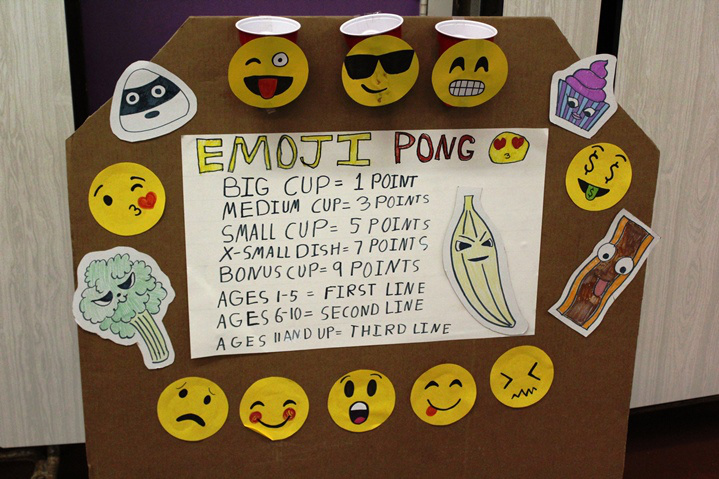 EMOJI PONG
BIG CUP = 1 POINT
MEDIUM CUP = 3 POINTS
SMALL CUP = 5 POINTS
X-SMALL DISH = 7 POINTS
BONUS CUP = 9 POINTS
AGES 1-5 = FIRST LINE
AGES 6-10 = SECOND LINE
AGES 11 AND UP = THIRD LINE